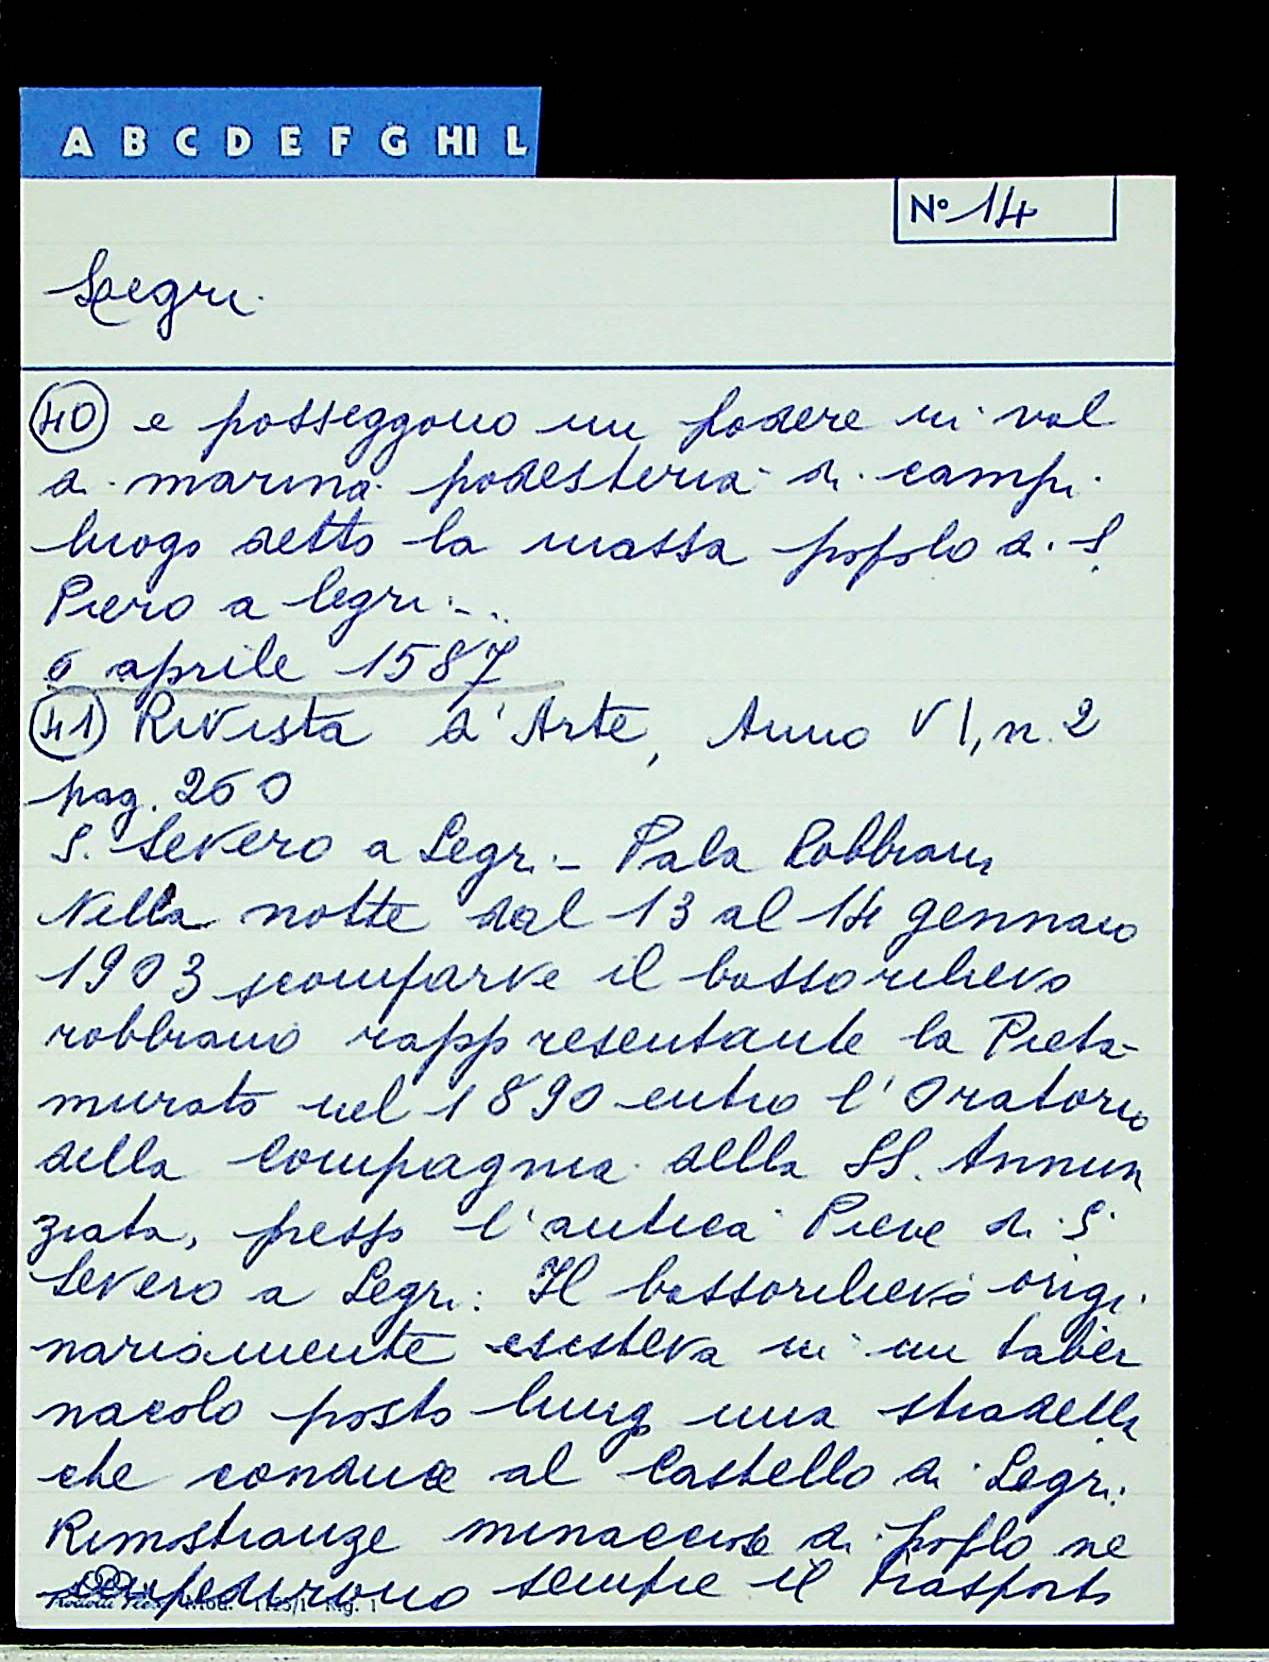 A B C D E F G HI L
Nº 14
Legri.
40 e posseggono un podere in val
di marina podesteria di campi
luogo detto la massa popolo di S.
Piero a legri...
6 aprile 1587
41 Rivista d'Arte, Anno VI, n. 2
pag. 260
S. Severo a Legri - Pala Robbiana
Nella notte dal 13 al 14 gennaio
1903 scomparve il bassorilievo
robbiano rappresentante la Pietà
murato nel 1890 entro l'Oratorio
della Compagnia della SS. Annun
ziata, presso l'antica Pieve di S.
Severo a Legri. Il bassorilievo origi
nariamente esisteva in un taber
nacolo posto lungo una stradella
che conduce al Castello di Legri.
Rimostranze minacciose di popolo ne
impedirono sempre il trasporto